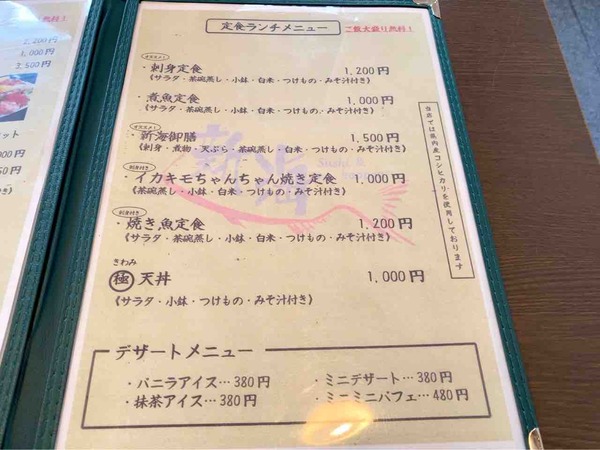 定食ランチメニュー
ご飯大盛り無料！
オススメ！
・刺身定食 1,200円
（サラダ・茶碗蒸し・小鉢・白米・つけもの・みそ汁付き）
・煮魚定食 1,000円
（サラダ・茶碗蒸し・小鉢・白米・つけもの・みそ汁付き）
オススメ！
・新海御膳 1,500円
（刺身・煮物・天ぷら・茶碗蒸し・白米・つけもの・みそ汁付き）
刺身付き
・イカキモちゃんちゃん焼き定食 1,000円
（茶碗蒸し・小鉢・白米・つけもの・みそ汁付き）
刺身付き
・焼き魚定食 1,200円
（サラダ・茶碗蒸し・小鉢・白米・つけもの・みそ汁付き）
きわみ
極 天丼 1,000円
（サラダ・小鉢・つけもの・みそ汁付き）
当店では県内産コシヒカリを使用しております
新海
デザートメニュー
・バニラアイス…380円
・抹茶アイス…380円
・ミニデザート…380円
・ミニミニパフェ…480円
2,200円
3,500円